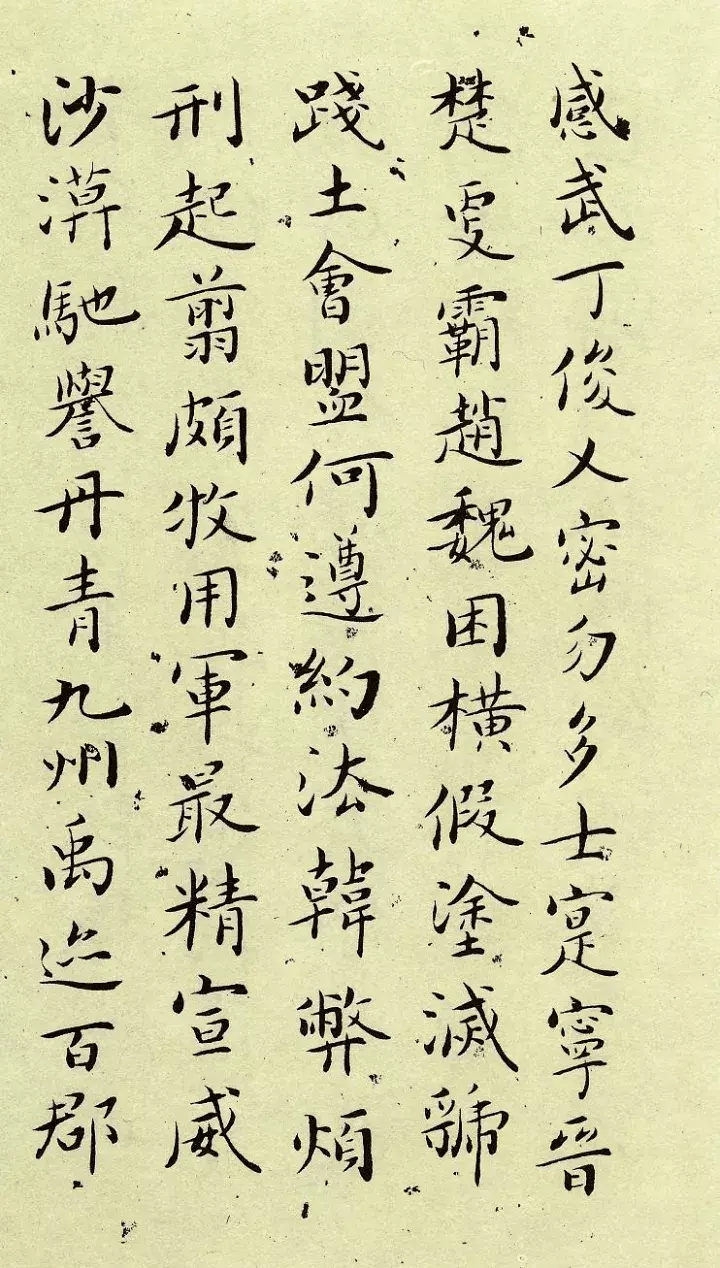 感武丁俊乂密勿多士寔寧晉
楚更霸趙魏困橫假塗滅虢
踐土會盟何遵約法韓弊煩
刑起翦頗牧用軍最精宣威
沙漠馳譽丹青九州禹迹百郡